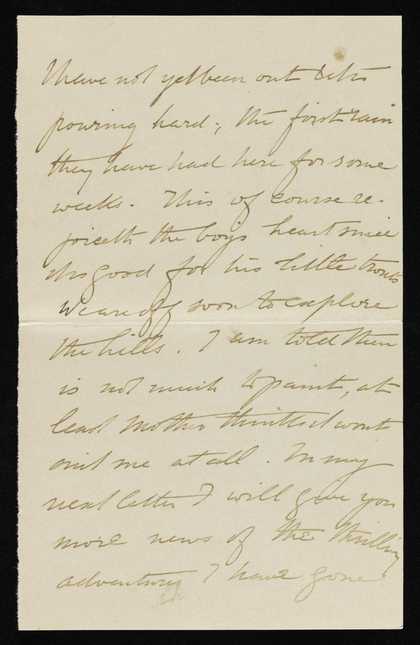 I have not yet been out & it's
pouring hard; the first rain
they have had here for some
weeks. This of course re-
joiceth the boy's heart since
it is good for his little trouts
We are off soon to explore
the hills. I am told there
is not much to paint, at
least Mother thinks it wont
suit me at all. In my
next letter I will give you
more news of the thrilling
adventures I have gone